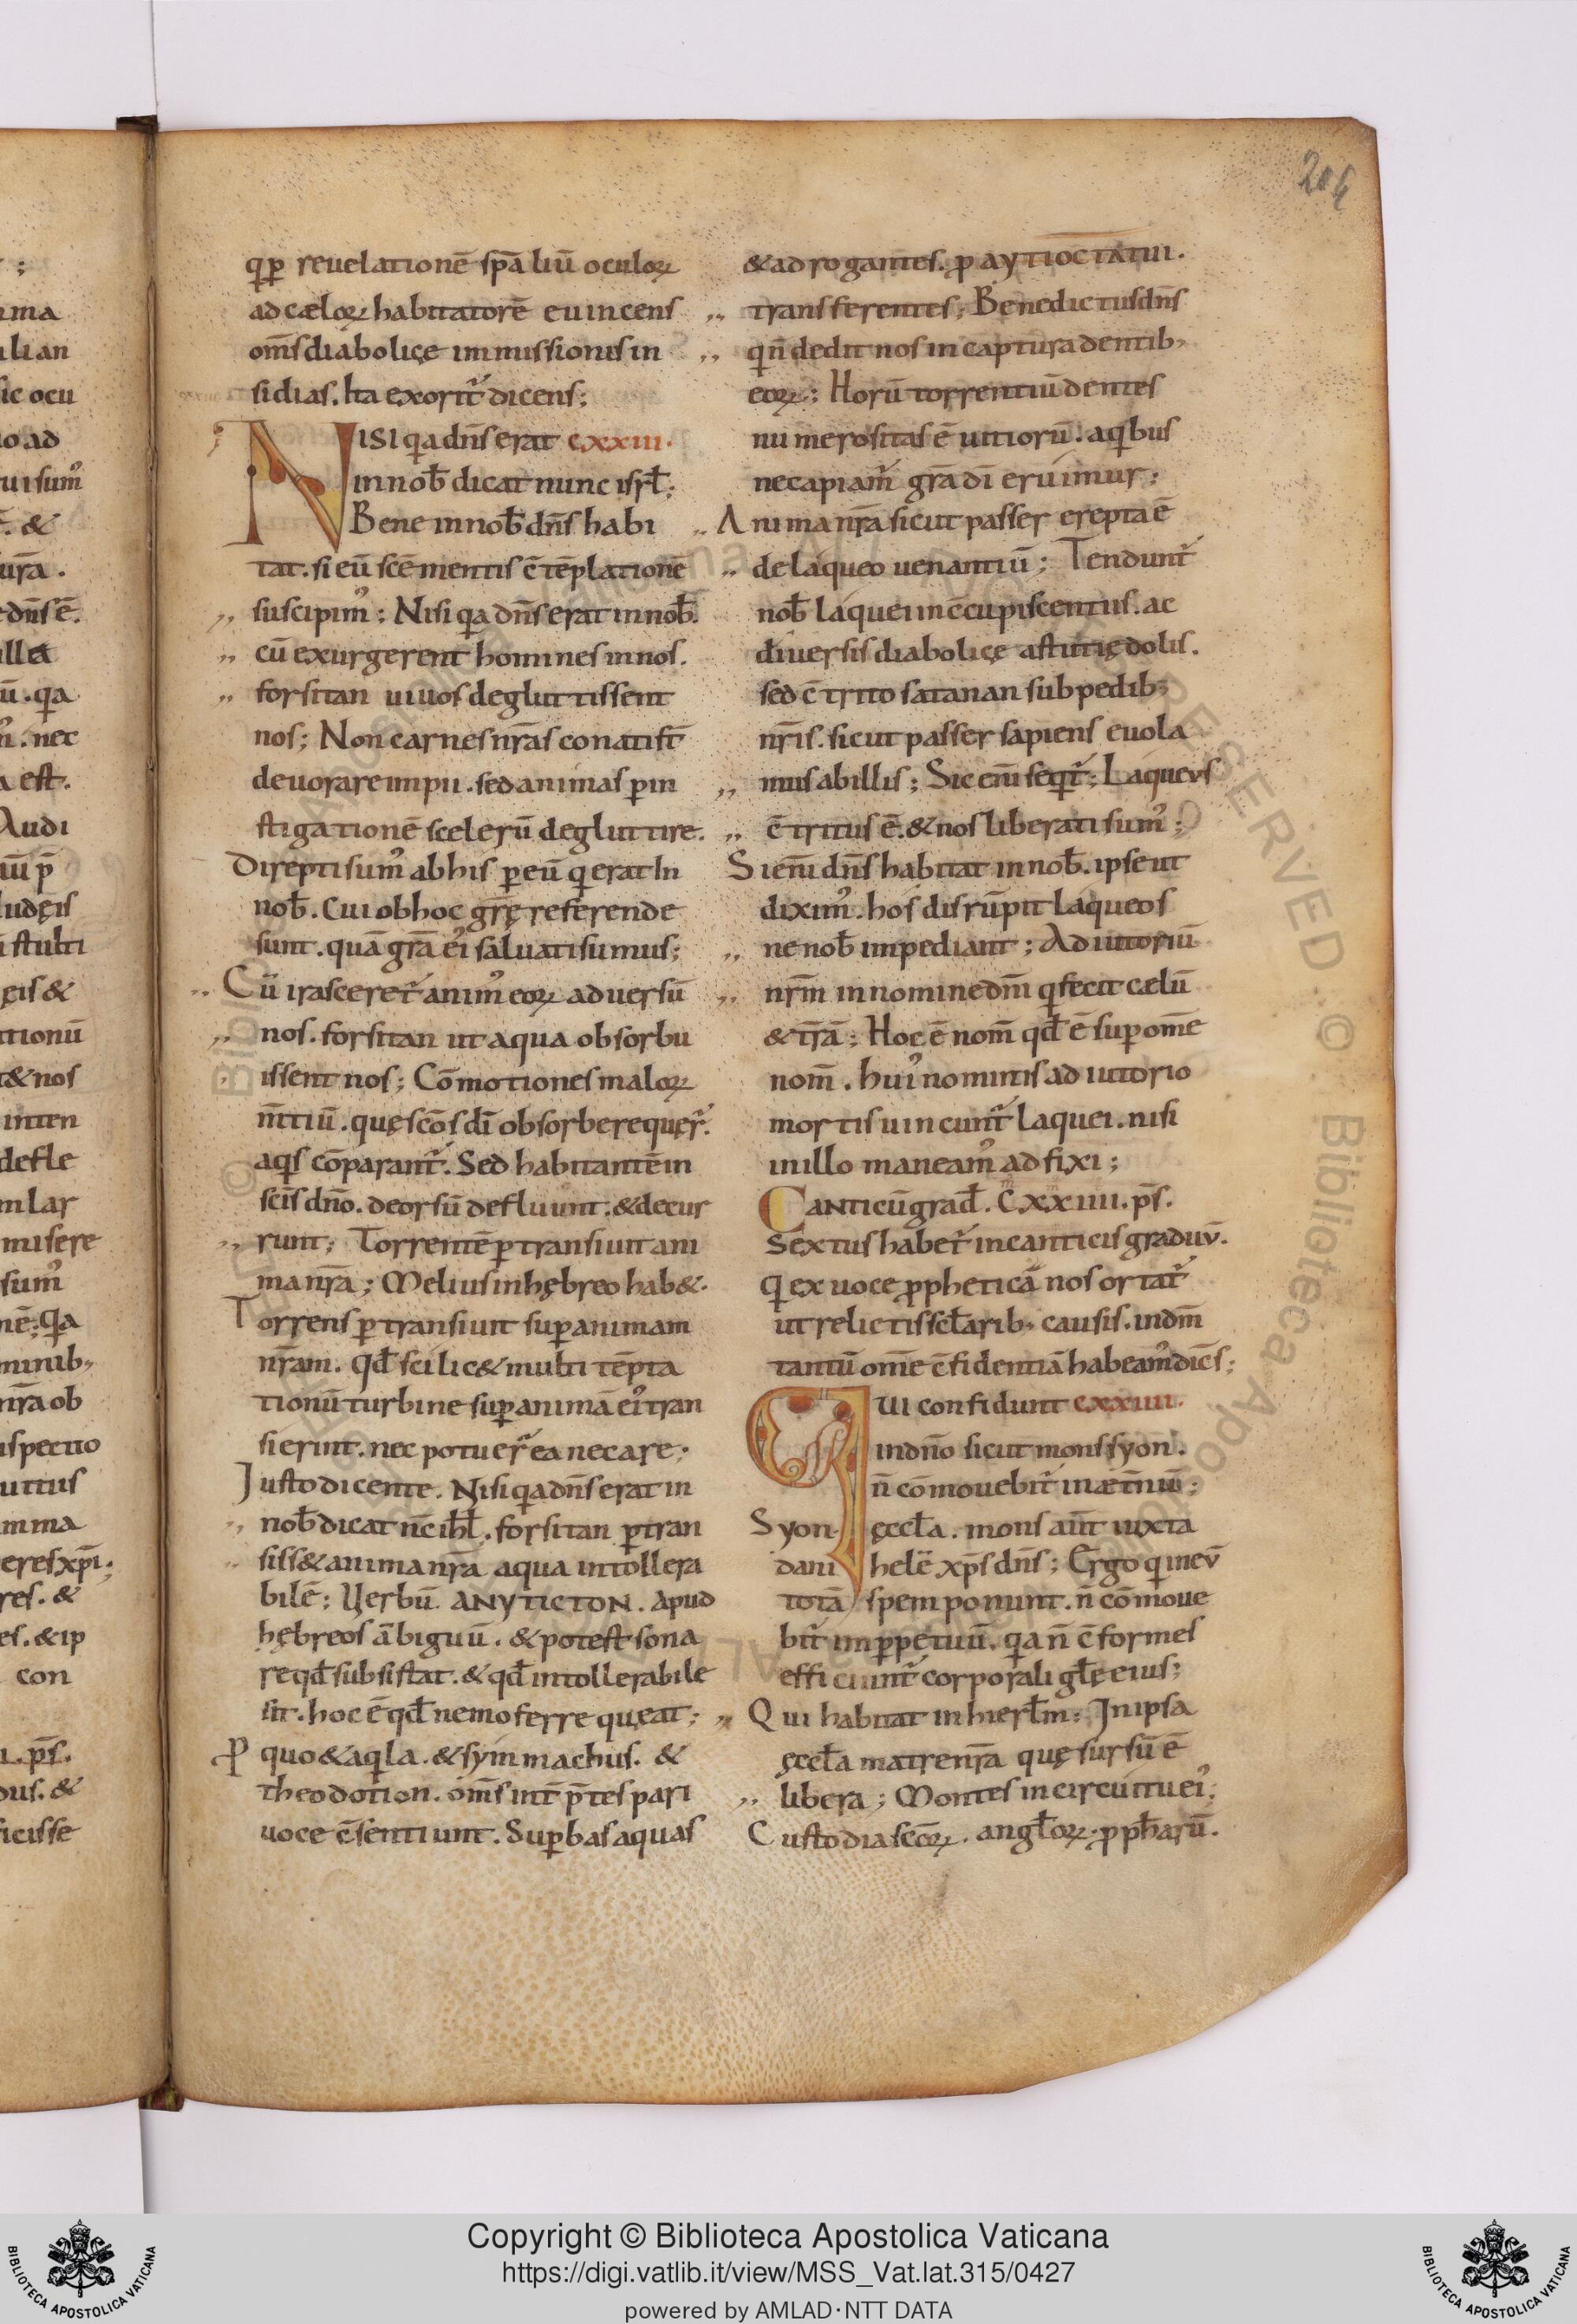 204
qꝑ reuelationē spāliū oculoꝝ
ad cæloꝝ habitatorē euincens
om̄s diabolicę immissionis in
sidias. Ita exorit᷑ dicens;
NISI qa dn̄s erat CXXIII.
in nob̄ dicat nunc isrł;
Bene in nob̄ dn̄s habi
tat. si eū scē mentis c̄tēplationē
suscipim᾽; Nisi qa dn̄s erat in nob̄.
cū exurgerent homines in nos.
forsitan uiuos degluttissent
nos; Non carnes nr̄as conati st̄
deuorare impii. sed animas ꝑ in
stigationē scelerū degluttire.
Direpti sum᾽ ab his ꝑ eū q erat In
nob̄. Cui ob hoc grę̄ referende
sunt. quā grā ei᾽ saluati sumus;
Cū irasceret᷑ anim᾽ eoꝝ aduersū
nos. forsitan ut aqua obsorbu
issent nos; Cōmotiones maloꝝ
m̄tiū. quę scōs dī obsorbere quęr᷑.
aqis cōparant᷑. Sed habitantē in
scīs dn̄o. deorsū defluunt. & decur
runt; Torrentē ꝑtransiuit ani
ma nr̄a; Melius in hębreo hab&.
Torrens ꝑtransiuit suꝑ animam
nr̄am. qd̄ scilic& multi tēpta
tionū turbine suꝑ animā ei᾽ tran
sierint. nec potuer᷑ ea necare;
Justo dicente. Nisi qa dn̄s erat in
nob̄ dicat nc̄ ihł. forsitan ꝑtran
siss& anima nr̄a aqua intollera
bilē; Uerbū ANYTICTON. apud
hębreos ābiguū. & potest sona
re qd̄ subsistat. & qd̄ intollerabile
sit. hoc ē qd̄ nemo ferre queat;
ꝓ quo & aqla. & symmachus. &
theodotion. om̄s int̄p̄tes pari
uoce c̄sentiunt. Suꝑbas aquas
& adrogantes. ꝓ aytioctatui.
transferentes; Benedictus dn̄s
q n̄ dedit nos in captura dentib;
eoꝝ; Horū torrentiū dentes
numerositas ē uitiorū. a qibus
ne capiam᷑ grā dī eruimur;
Anima nr̄a sicut passer erepta ē
de laqueo uenantiū; Tendunt᷑
nob̄ laquei in c̄cupiscentiis. ac
diuersis diabolicę astutię dolis.
sed c̄trito satanan sub pedib;
nr̄is. sicut passer sapiens euola
mus ab illis; Sic eni̅ seqt᷑; Laqueus
c̄tritus ē. & nos liberati sum᾽;
Si eni̅ dn̄s habitat in nob̄. ipse ut
dixim᾽. hos disrūpit laqueos
ne nob̄ impediant; Adiutoriū
nr̄m in nomine dn̄i q fecit cælū
& tr̄ā; Hoc ē nom̄ qd̄ ē suꝑ om̄e
nom̄. hui᾽ nominis adiutorio
mortis uincunt᷑ laquei. nisi
in illo maneam᾽ adfixi;
CANTICŪ grad̄. CXXIIII. ps̄.
Sextus habet᷑ in canticis graduū.
q ex uoce ꝓphetica nos ortat᷑
ut relictis sc̄łarib; causis. in dn̄m
tantū om̄e c̄fidentiā habeam᾽ dicēs;
QUI confidunt CXXIIII.
in dn̄o sicut mons syon.
n̄ cōmouebit᷑ in æt̄nū;
Syon ęccła. mons aūt iuxta
danihelē xp̄s dn̄s; Ergo q in eū
totā spem ponunt. n̄ cōmoue
bit᷑ in ꝑpetuū. qa n̄ c̄formes
efficiunt᷑ corporali głę eius;
Qui habitat in hierłm; In ipsa
ęccła matre nr̄a quę sursū ē
libera; Montes in circuitu ei᾽;
Custodia scōꝝ. angłoꝝ. ꝓpħarū.
Copyright © Biblioteca Apostolica Vaticana
https://digi.vatlib.it/view/MSS_Vat.lat.315/0427
powered by AMLAD·NTT DATA
BIBLIOTECA APOSTOLICA VATICANA
BIBLIOTECA APOSTOLICA VATICANA